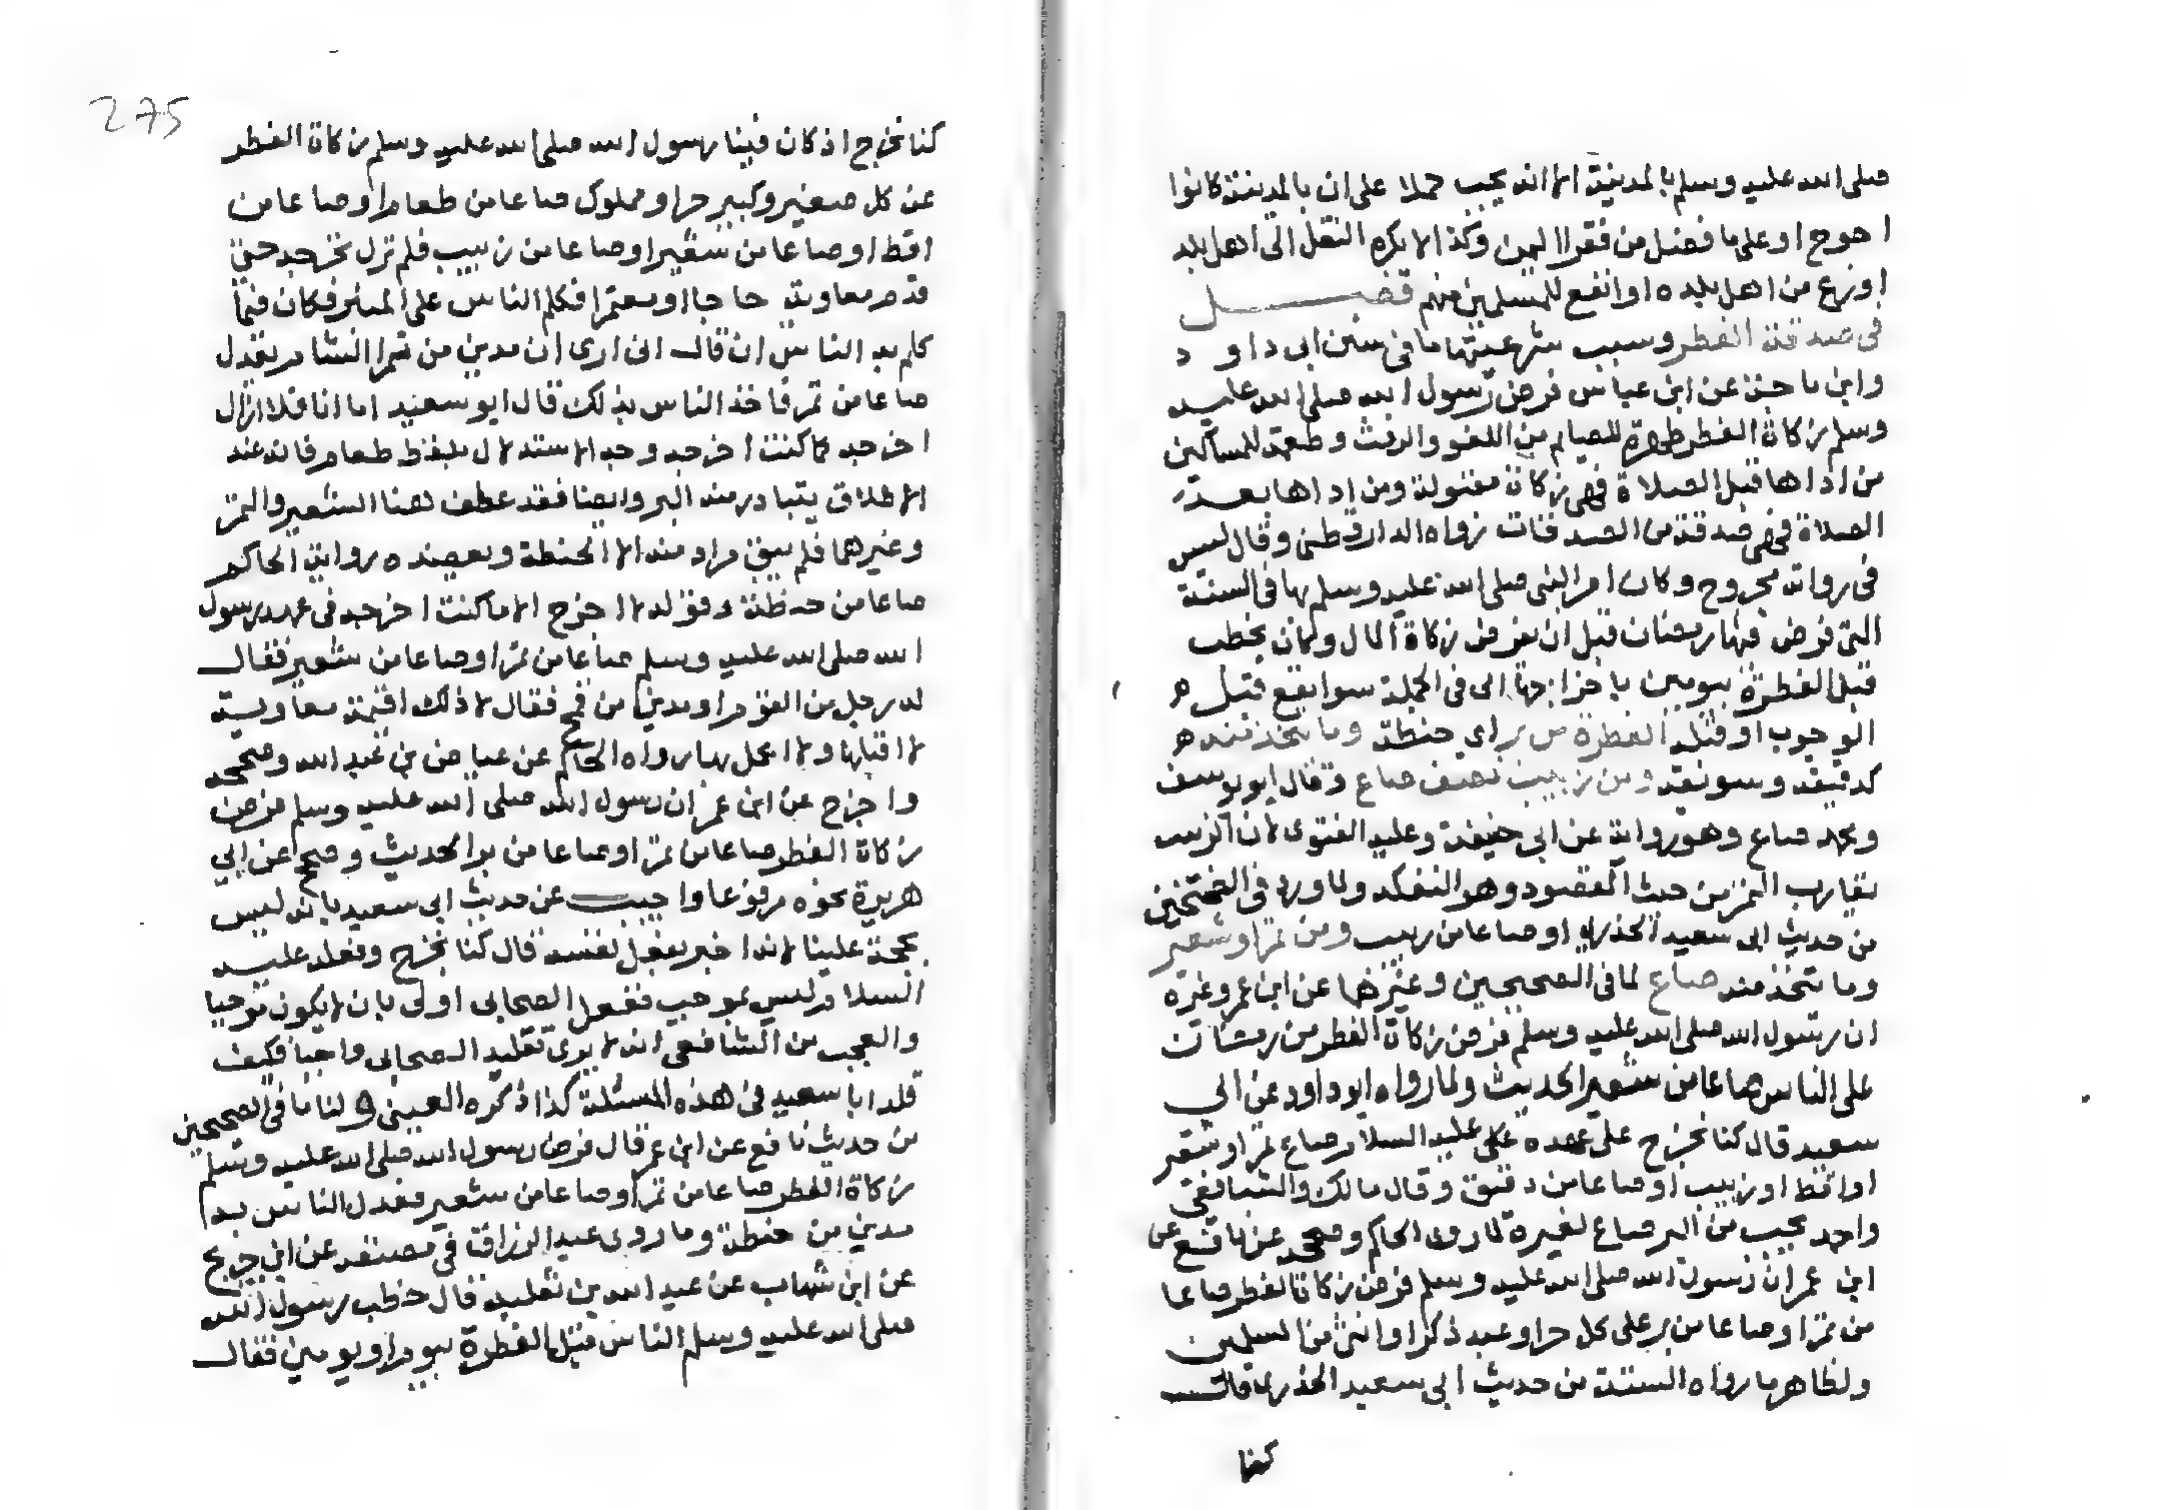 صلى الله عليه وسلم بالمدينة الا انه يجب حملا على ان بالمدينة كانوا
احوج او على ما فضل من فقرا اليمن وكذا لا يكره النقل الى اهل بلد
اورع من اهل بلده او انفع للمسلمين منهم فصل
في صدقة الفطر وسبب شرعيتها ما في سنن ابي داود
وابن ماجة عن ابن عباس فرض رسول الله صلى الله عليه
وسلم زكاة الفطر طهرة للصيام من اللغو والرفث وطعمة للمساكين
من اداها قبل الصلاة فهي زكاة مقبولة ومن اداها بعد
الصلاة فهي صدقة من الصدقات رواه الدارقطني وقال ليس
في رواته مجروح وكان امر النبي صلى الله عليه وسلم بها في السنة
التي فرض فيها رمضان قبل ان يفرض زكاة المال وكان يخطب
قبل الفطرة بيومين باخراجها الى في الجملة سوا يقع قبل
الوجوب او قبله الفطرة من بر اي حنطة وما يتخذ منه
كدقيقه وسويقه ومن زبيب نصف صاع وقال ابو يوسف
ومحمد صاع وهو رواية عن ابي حنيفة وعليه الفتوى لان الزبيب
يقارب التمر من حيث المقصود وهو التفكه ولما ورد في الصحيحين
من حديث ابي سعيد الخدري او صاعا من زبيب ومن تمر او شعير
وما يتخذ منه صاع لما في الصحيحين وغيرهما عن ابن عمر وغيره
ان رسول الله صلى الله عليه وسلم فرض زكاة الفطر من رمضان
على الناس صاعا من شعير الحديث ولما رواه ابو داود عن ابي
سعيد قال كنا نخرج على عهده عليه السلام صاع تمر او شعير
او اقط او زبيب او صاعا من دقيق وقال مالك والشافعي
واحمد يجب من البر صاع لغيره لما روى الحاكم وصححه عن نافع عن
ابن عمر ان رسول الله صلى الله عليه وسلم فرض زكاة الفطر صاعا
من تمر او صاعا من بر على كل حر او عبد ذكر او انثى من المسلمين
ولظاهر ما رواه الستة من حديث ابي سعيد الخدري قال
كنا
275
كنا نخرج اذ كان فينا رسول الله صلى الله عليه وسلم زكاة الفطر
عن كل صغير وكبير حر او مملوك صاعا من طعام او صاعا من
اقط او صاعا من شعير او صاعا من زبيب فلم نزل نخرجه حتى
قدم معاوية حاجا او معتمرا فكلم الناس على المنبر فكان فيما
كلم به الناس ان قال اني ارى ان مدين من تمر الشام يعدل
صاعا من تمر فاخذ الناس بذلك قال ابو سعيد اما انا فلا ازال
اخرجه كما كنت اخرجه وجه الاستدلال بلفظ طعام فانه عند
الاطلاق يتبادر منه البر وايضا فقد عطف هنا الشعير والتمر
وغيرهما فلم يبق مراد منه الا الحنطة ويعضده رواية الحاكم
صاعا من حنطة وقوله لا اخرج الا ما كنت اخرجه في عهد رسول
الله صلى الله عليه وسلم صاعا من تمر او صاعا من شعير فقال
له رجل من القوم او مدين من قمح فقال لا ذلك قيمة معاوية
لا اقبلها ولا اعمل بها رواه الحاكم عن عياض بن عبد الله وصححه
واخرج عن ابن عمر ان رسول الله صلى الله عليه وسلم فرض
زكاة الفطر صاعا من تمر او صاعا من بر الحديث وصححه عن ابي
هريرة نحوه مرفوعا واجيب عن حديث ابي سعيد بانه ليس
بحجة علينا لانه اخبر بفعل نفسه قال كنا نخرج وفعله عليه
السلام ليس بموجب ففعل الصحابي اولى بان لا يكون موجبا
والعجب من الشافعي انه لا يرى تقليد الصحابي واجبا فكيف
قلد ابا سعيد في هذه المسئلة كذا ذكره العيني ولنا ما في الصحيحين
من حديث نافع عن ابن عمر قال فرض رسول الله صلى الله عليه وسلم
زكاة الفطر صاعا من تمر او صاعا من شعير فعدل الناس به
مدين من حنطة وما روى عبد الرزاق في مصنفه عن ابن جريج
عن ابن شهاب عن عبد الله بن ثعلبة قال خطب رسول الله
صلى الله عليه وسلم الناس قبل الفطرة بيوم او يومين فقال